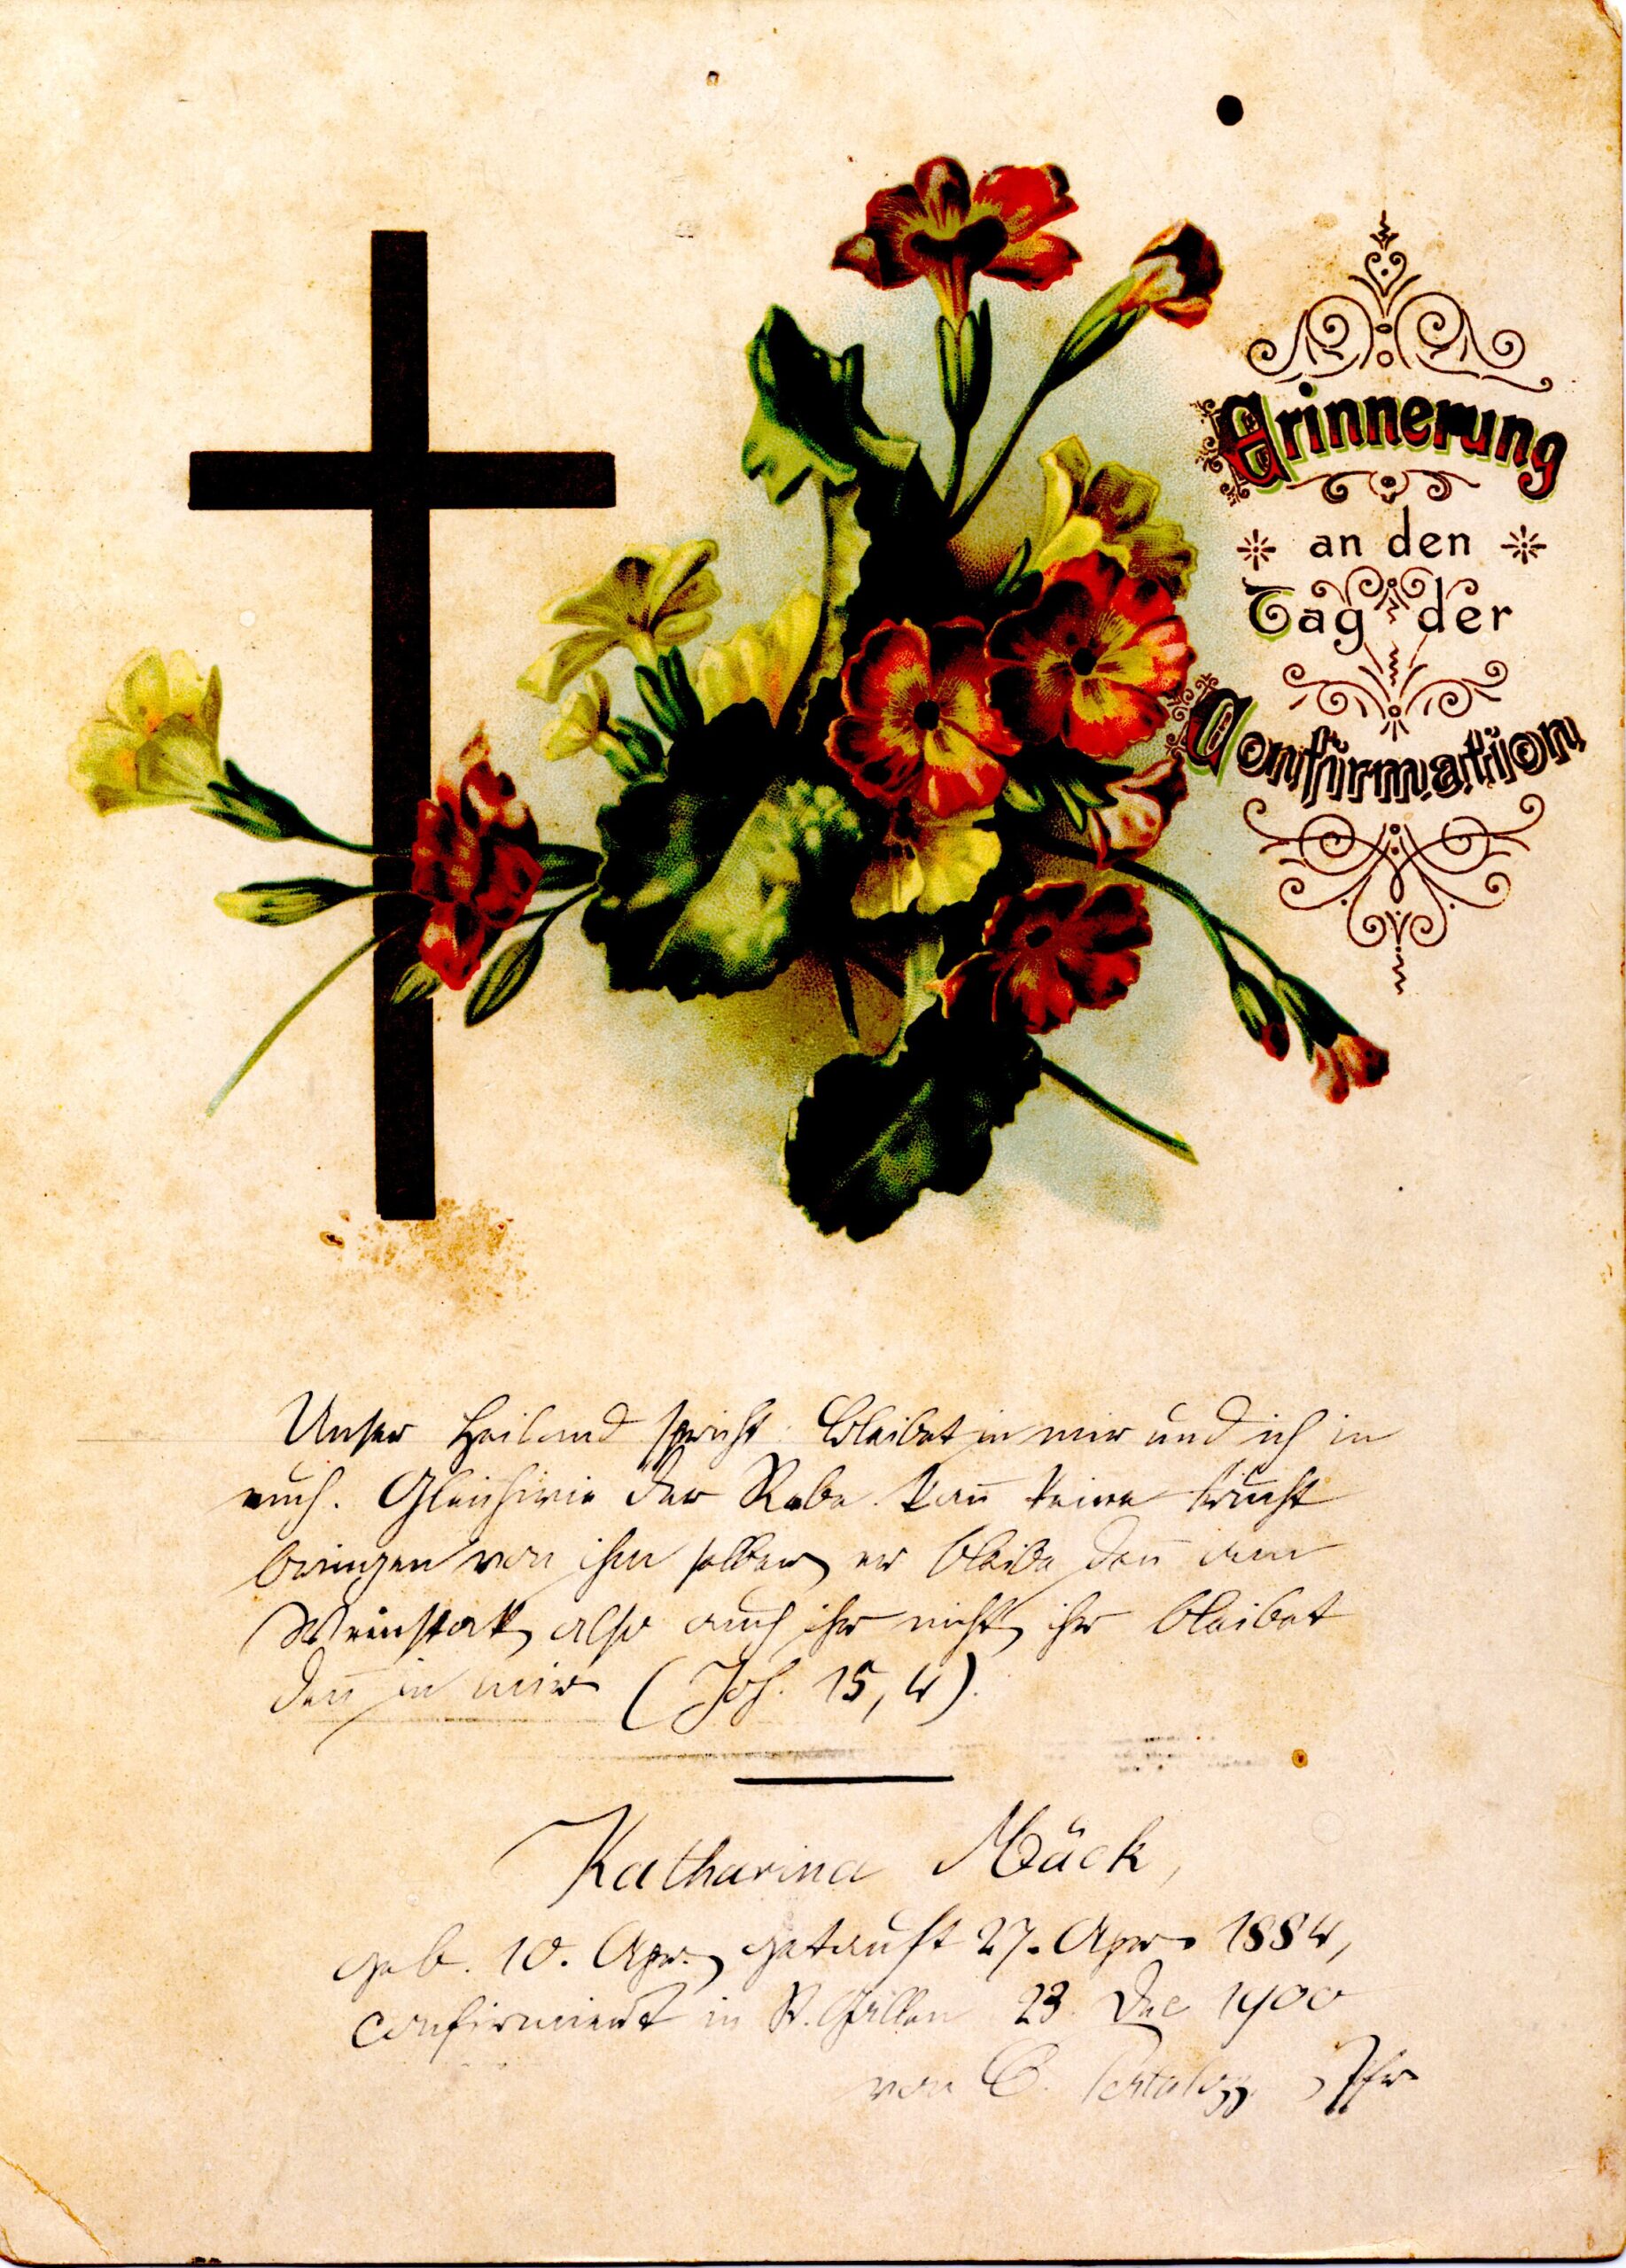 Erinnerung
an den
Tag der
Confirmation
Unser Heiland spricht: Bleibet in mir und ich in
euch. Gleichwie der Rebe kan̄ keine Frucht
bringen von ihm selber, er bleibe den̄ am
Weinstok, also auch ihr nicht, ihr bleibet
den̄ in mir (Joh. 15, 4).
Katharina Mäck,
geb. 10. Apr., getauft 27. Apr. 1884,
confirmiert in St. Gallen 23. Dec 1900
von C. Pestalozzi, Pfr